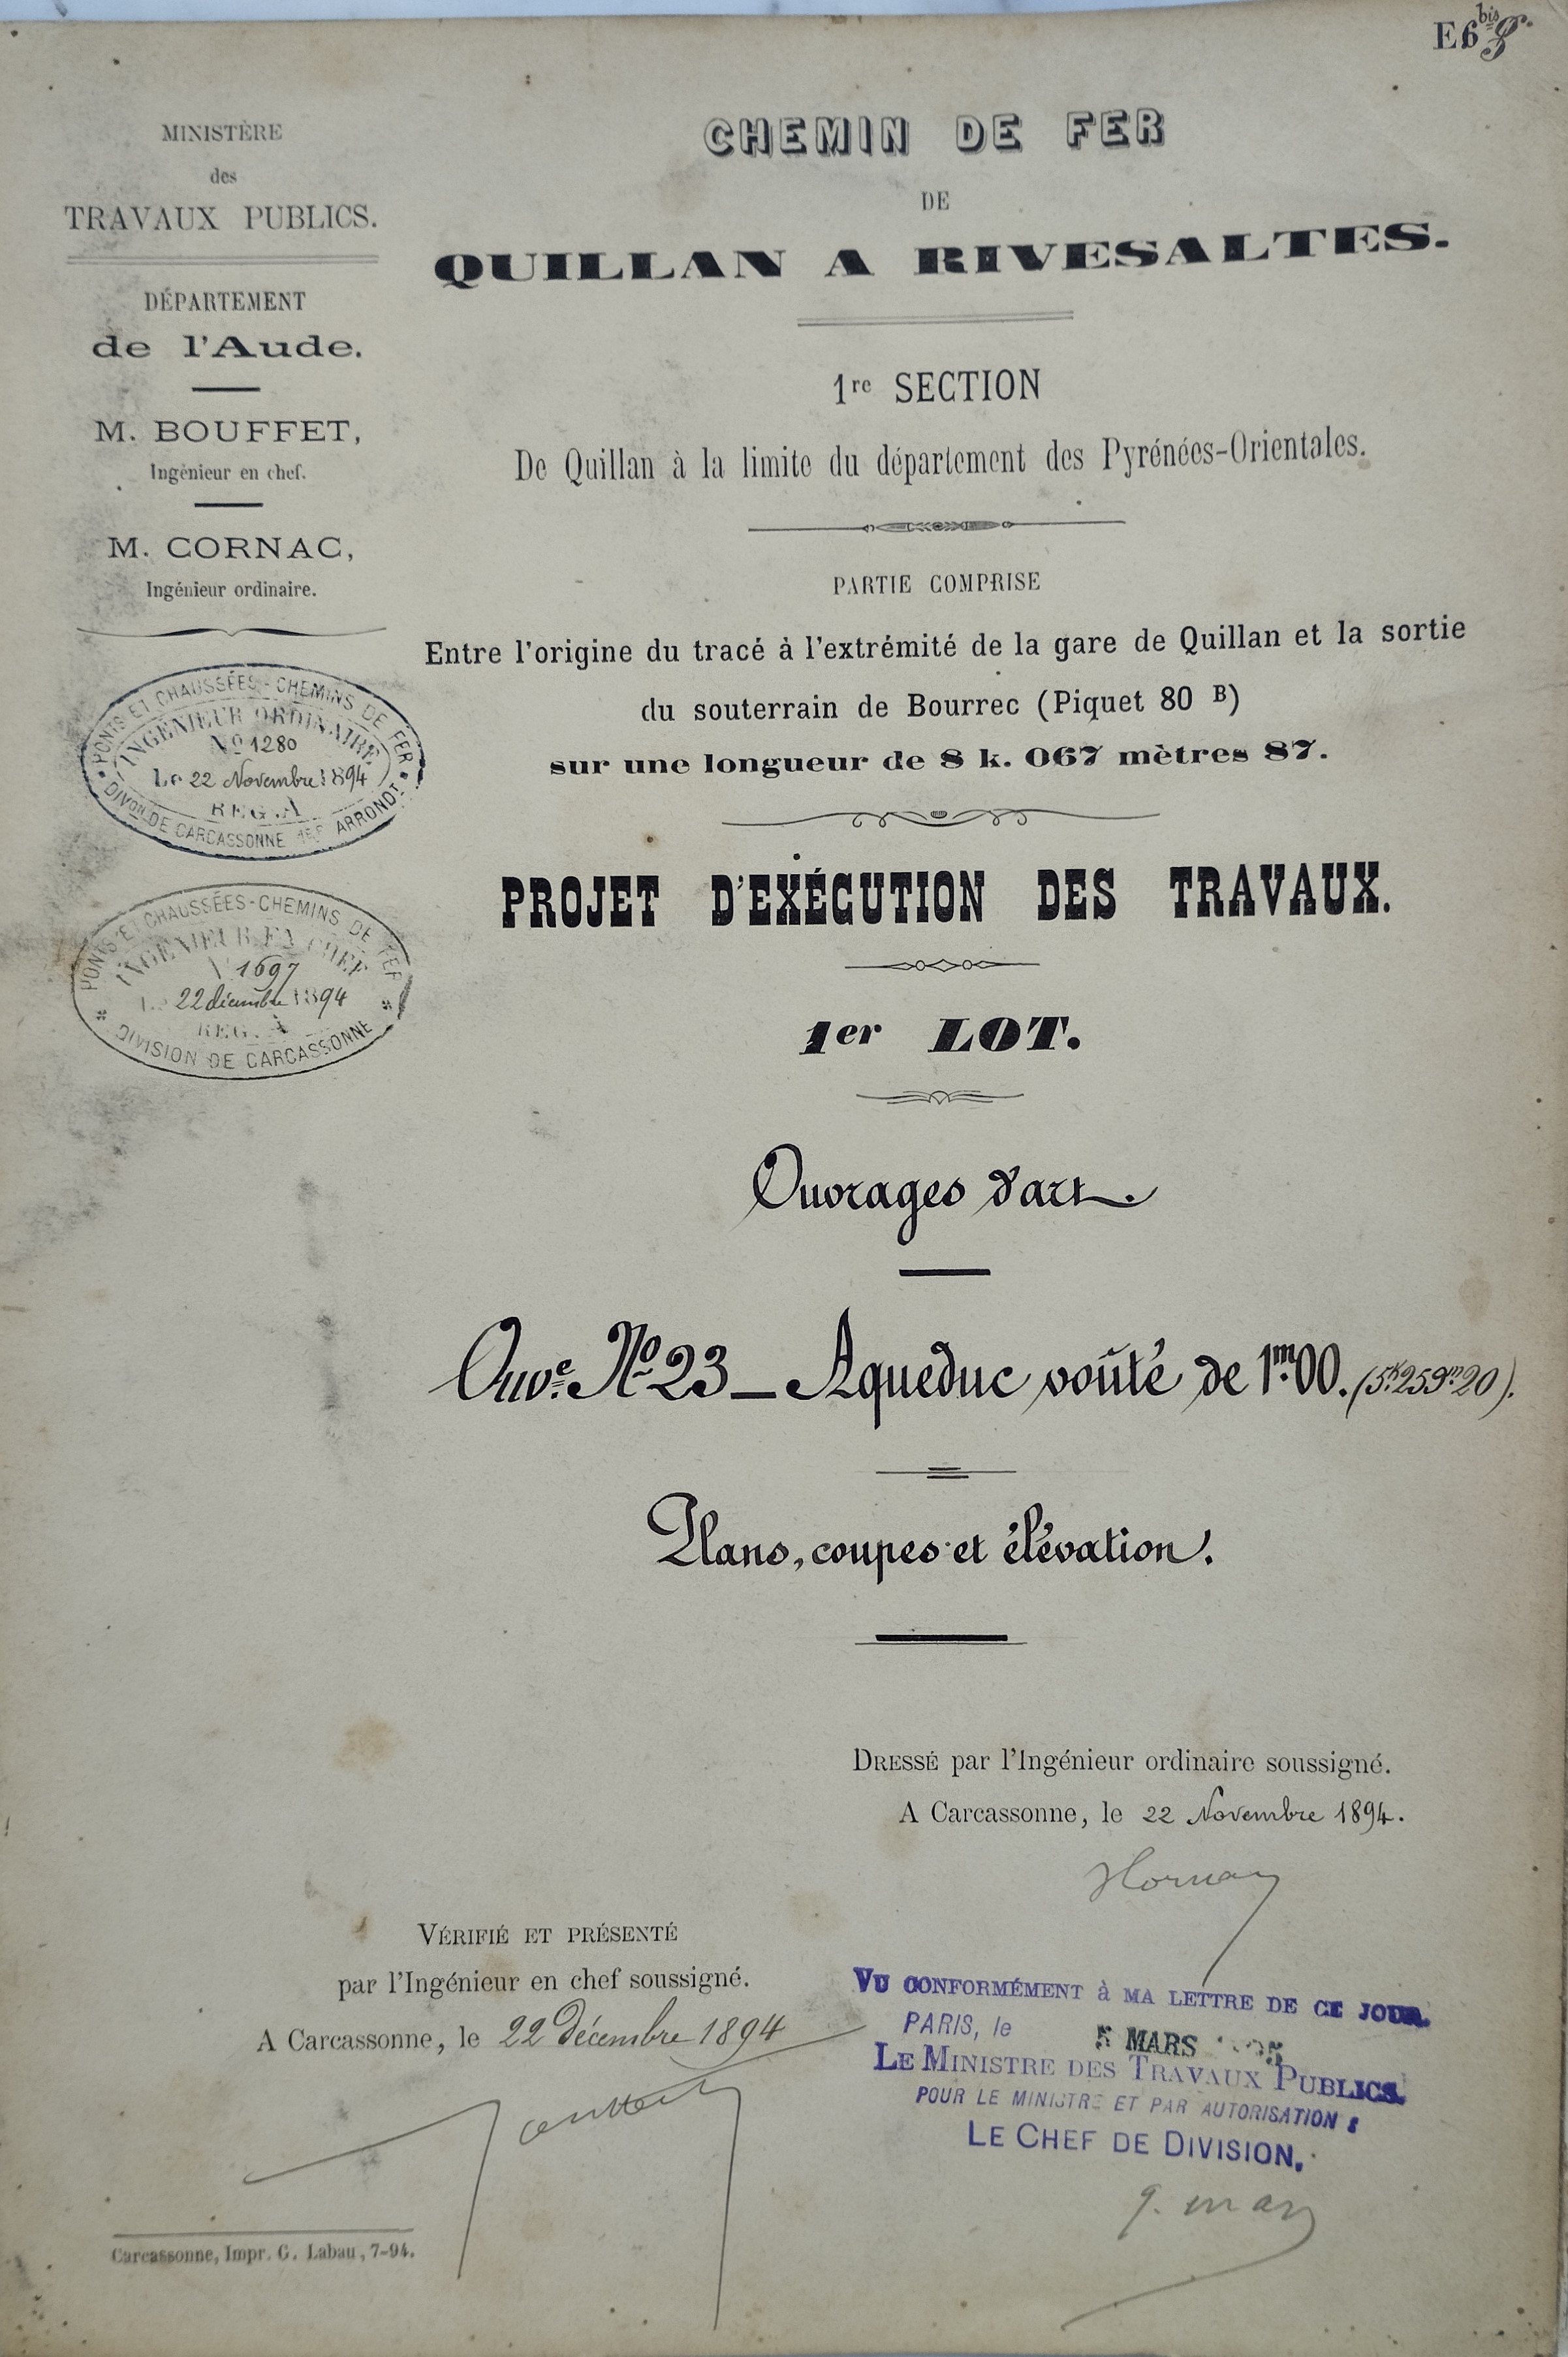 E6 bis
MINISTÈRE
des
TRAVAUX PUBLICS.
DÉPARTEMENT
de l'Aude.
M. BOUFFET,
Ingénieur en chef.
M. CORNAC,
Ingénieur ordinaire.
PONTS ET CHAUSSÉES - CHEMINS DE FER
INGÉNIEUR ORDINAIRE
No 1280
Le 22 Novembre 1894
REG. A
DIVon DE CARCASSONNE 1er ARRONDt
PONTS ET CHAUSSÉES - CHEMINS DE FER
INGÉNIEUR EN CHEF
N 1697
Le 22 décembre 1894
REG. A
DIVISION DE CARCASSONNE
CHEMIN DE FER
DE
QUILLAN A RIVESALTES.
1re SECTION
De Quillan à la limite du département des Pyrénées-Orientales.
PARTIE COMPRISE
Entre l'origine du tracé à l'extrémité de la gare de Quillan et la sortie
du souterrain de Bourrec (Piquet 80 B)
sur une longueur de 8 k. 067 mètres 87.
PROJET D'EXÉCUTION DES TRAVAUX.
1er LOT.
Ouvrages d'art.
Ouve. No 23 _ Aqueduc voûté de 1m.00. (5k.259m.20).
Plans, coupes et élévation.
DRESSÉ par l'Ingénieur ordinaire soussigné.
A Carcassonne, le 22 Novembre 1894.
VÉRIFIÉ ET PRÉSENTÉ
par l'Ingénieur en chef soussigné.
A Carcassonne, le 22 Décembre 1894
VU CONFORMÉMENT à MA LETTRE DE CE JOUR.
PARIS, le 5 MARS 1895
LE MINISTRE DES TRAVAUX PUBLICS.
POUR LE MINISTRE ET PAR AUTORISATION :
LE CHEF DE DIVISION,
Carcassonne, Impr. G. Labau, 7-94.